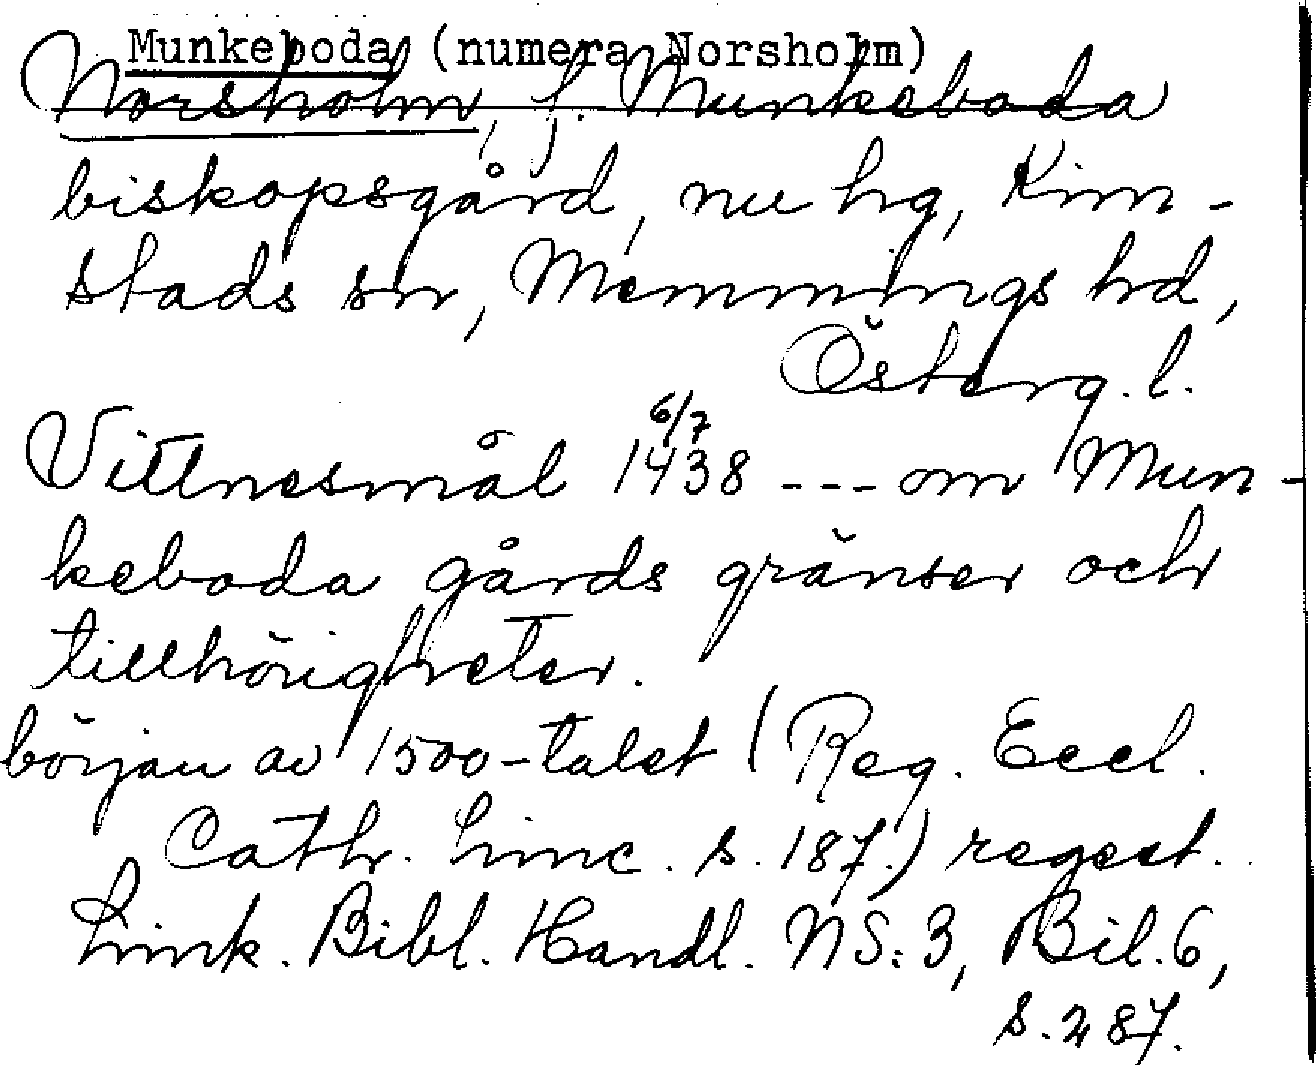 Munkeboda (numera Norsholm)
Norsholm, f. Munkeboda
biskopsgård, nu hg, Kim-
stads sn, Memmings hd,
Österg.l.
Vittnesmål 6/7 1438 --- om Mun-
keboda gårds gränser och
tillhörigheter.
början av 1500-talet (Reg. Eccl.
Cath. Linc. s. 187.) regest.
Link. Bibl. Handl. NS:3, Bil.6,
s. 287.